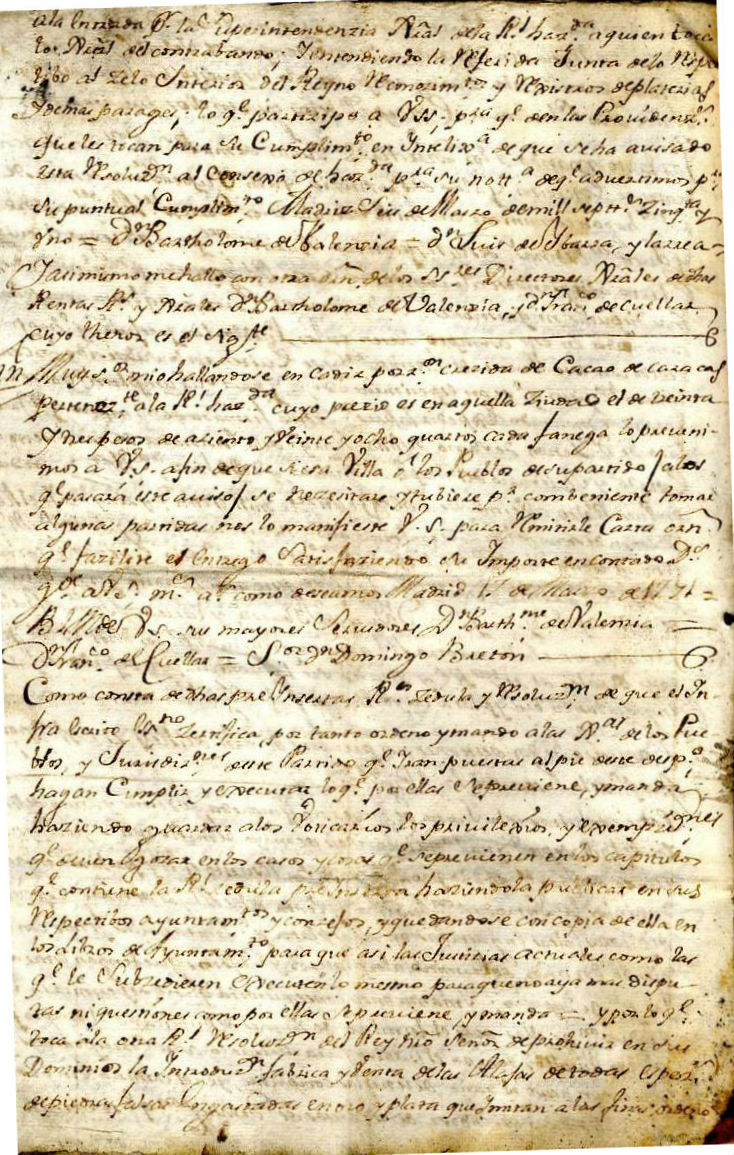 a la Entrada Pr. la Superintendenzia Rl. de la Rl. hazda. a quien toca
los del contrabando; Yentendiendo la referida Junta delo
tibo al zelo Interior del Reyno y Rexistros de platerias
Ydemas parages; lo qe. partizipo a VSS. pra. qe. den las Providenzs.
que les tocan para su Cumplimto. en Intelixa. de que se ha avisado
esta Resoluzn. al Consexo de hazda. pra. su notta. de qe. advertimos pra.
su puntual Cumplimto. Madrid Seis de Marzo de mill septts. Zinqta. y
Vno = Dn. Bartholome de Valenzia = dn. Luis de Ybarra, y larrea =
Yasimismo me hallo con otra de los SSres. Directores de dhas
Rentas Rs. y Dn. Bartholome de Valenzia, y dn. Franco. de Cuellar
cuyo thenor es el sigte.
Muy Sor. mio hallandose en Cadiz porzn. crezida de Cacao de caracas
pertenezte. a la Rl. hazda. cuyo prezio es en aquella Ziudad el de treinta
Y tres pesos de a ziento y Veinte y ocho quartos cada fanega lo preveni-
mos a V.S. afin de que si esa Villa o los Pueblos de su partido / a los
qe. pasará este aviso / se nezesitare y tubiese pr. combeniente tomar
algunas partidas nos lo manifieste V.S. para Remitirle Carta orn.
qe. fazilite el Entrego Satisfaziendo su Importe en contado Ds.
gde. a V.S. ms. as. como deseamos Madrid de Marzo de 1751 =
BLM de V.S. sus mayores Servidores Dn. Barthme. de Valenzia =
dn. Franco. de Cuellar = Sor. dn. Domingo Breton
Como consta de dhas pre Ynsertas Rl. zedula y Resoluzn. de que el In-
fra escrito essno. Zertifica, por tanto ordeno y mando a las de los Pue-
blos, y Jurisdiznes. deste Partido qe. Iran puestas al pie deste despo.
hagan Cumplir y executar lo qe. por ellas se previene, y manda
haziendo guardar a los Boticarios los privilexios, y exempciones
qe. deven gozar en los casos y cosas qe. se previenen en los capitulos
qe. contiene la Rl. zedula pre Inserta haziendola publicar en sus
Respectibos ayuntamtos. y conzejos, y quedandose con copia de ella en
los Libros de Ayuntamto. para que asi las Justizias actuales como las
qe. le Subzedieren executen lo mesmo para que no aya mas dispu-
tas ni questiones como por ellas se previene, y manda = y por lo qe.
toca a la otra Rl. Resoluzn. del Rey nro Señor de prohivir en sus
Dominios la Introduzn. fabrica y Venta de las Alajas de todas espezs.
de piedras falsas Engastadas en oro y plata que Imitan a las finas; ordeno